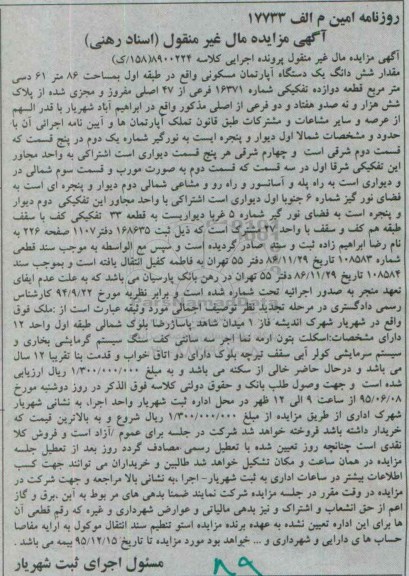 روزنامه امین م الف ۱۷۷۳۳
آگهی مزایده مال غیر منقول (اسناد رهنی)
آگهی مزایده مال غیر منقول پرونده اجرایی کلاسه ۸۹۰۰۲۲۴(۱۵۸/ک)
مقدار شش دانگ یک دستگاه آپارتمان مسکونی واقع در طبقه اول بمساحت ۸۶ متر ۶۱ دسی
متر مربع قطعه دوازده تفکیکی شماره ۱۶۳۷۱ فرعی از ۴۷ اصلی مفروز و مجزی شده از پلاک
شش هزار و نه صدو هفتاد و دو فرعی از اصلی مذکور واقع در ابراهیم آباد شهریار با قدر السهم
از عرصه و سایر مشاعات و مشترکات طبق قانون تملک آپارتمان ها و آیین نامه اجرائی آن با
حدود و مشخصات شمالا اول دیوار و پنجره ایست به نورگیر شماره یک دوم در پنج قسمت که
قسمت دوم شرقی است و چهارم شرقی هر پنج قسمت دیواری است اشتراکی به واحد مجاور
این تفکیکی شرقا اول در سه قسمت که قسمت دوم به صورت مورب و قسمت سوم شمالی در
و دیواری است به راه پله و آسانسور و راه رو و مشاعی شمالی دوم دیوار و پنجره ای است به
فضای نور گیر شماره ۶ جنوبا اول دیواری است اشتراکی با واحد مجاور این تفکیکی دوم دیوار
و پنجره است به فضای نور گیر شماره ۵ غربا دیواریست به قطعه ۳۳ تفکیکی کف با سقف
طبقه هم کف و سقف با واحد ۴۷ اشتراکی است که ذیل ثبت ۱۶۸۶۳۵ دفتر ۱۱۰۷ صفحه ۲۲۶ به
نام رضا ابراهیم زاده ثبت و سند صادر گردیده است و سپس مع الواسطه به موجب سند قطعی
شماره ۱۰۸۵۸۳ تاریخ ۸۶/۱۱/۲۹ دفتر ۵۵ تهران به فاطمه کفیل انتقال یافته است و بموجب سند
۱۰۸۵۸۴ تاریخ ۸۶/۱۱/۲۹ دفتر ۵۵ تهران در رهن بانک پارسیان می باشد که به علت عدم ایفای
تعهد منجر به صدور اجرائیه تحت شماره فوق شده است و برابر نظریه مورخ ۹۴/۹/۲۲ کارشناس
رسمی دادگستری در مرحله تجدید نظر توصیف اجمالی مورد وثیقه عبارت است از :ملک فوق
واقع در شهریار شهرک اندیشه فاز ۱ میدان شاهد پاساژرضا بلوک شمالی طبقه اول واحد ۱۲
دارای مشخصات:اسکلت بتون ارمه نما اجر سه سانتی کف سنگ سیستم گرمایشی بخاری و
سیستم سرمایشی کولر آبی سقف تیرچه بلوک دارای دو اتاق خواب و قدمت بنا تقریبا ۱۲ سال
می باشد و درحال حاضر خالی از سکنه می باشد و به مبلغ ۱/۳۰۰/۰۰۰/۰۰۰ ریال ارزیابی
شده است و جهت وصول طلب بانک و حقوق دولتی کلاسه فوق الذکر در روز دوشنبه مورخ
۹۵/۰۶/۰۸ از ساعت ۹ الی ۱۲ ظهر در محل اداره ثبت شهریار واحد اجرا، به نشانی شهریار
شهرک اداری از طریق مزایده از مبلغ ۱/۳۰۰/۰۰۰/۰۰۰ ریال شروع و به بالاترین قیمت که
خریدار داشته باشد فروخته خواهد شد شرکت در جلسه برای عموم /آزاد است و فروش کلا
نقدی است چنانچه روز تعیین شده با تعطیل رسمی مصادف گردد روز بعد از تعطیل جلسه
مزایده در همان ساعت و مکان تشکیل خواهد شد طالبین و خریداران می توانند جهت کسب
اطلاعات بیشتر در ساعات اداری به ثبت شهریار- اجرا ،به نشانی بالا مراجعه و جهت شرکت در
مزایده در وقت مقرر در جلسه مزایده شرکت نمایند ضمنا بدهی های مر بوط به آین .برق و گاز
اعم از حق انشعاب و اشتراک و نیز بدهی مالیاتی و عوارض شهرداری و غیره که رقم قطعی آن
ها برای این اداره تعیین نشده به عهده برنده مزایده استو تنظیم سند انتقال موکول به ارایه مفاصا
حساب ها ی دارایی و شهرداری و ... خواهد بود مورد مزایده تا تاریخ ۹۵/۱۲/۱۵ بیمه می باشد .
مسئول اجرای ثبت شهریار
۸۹